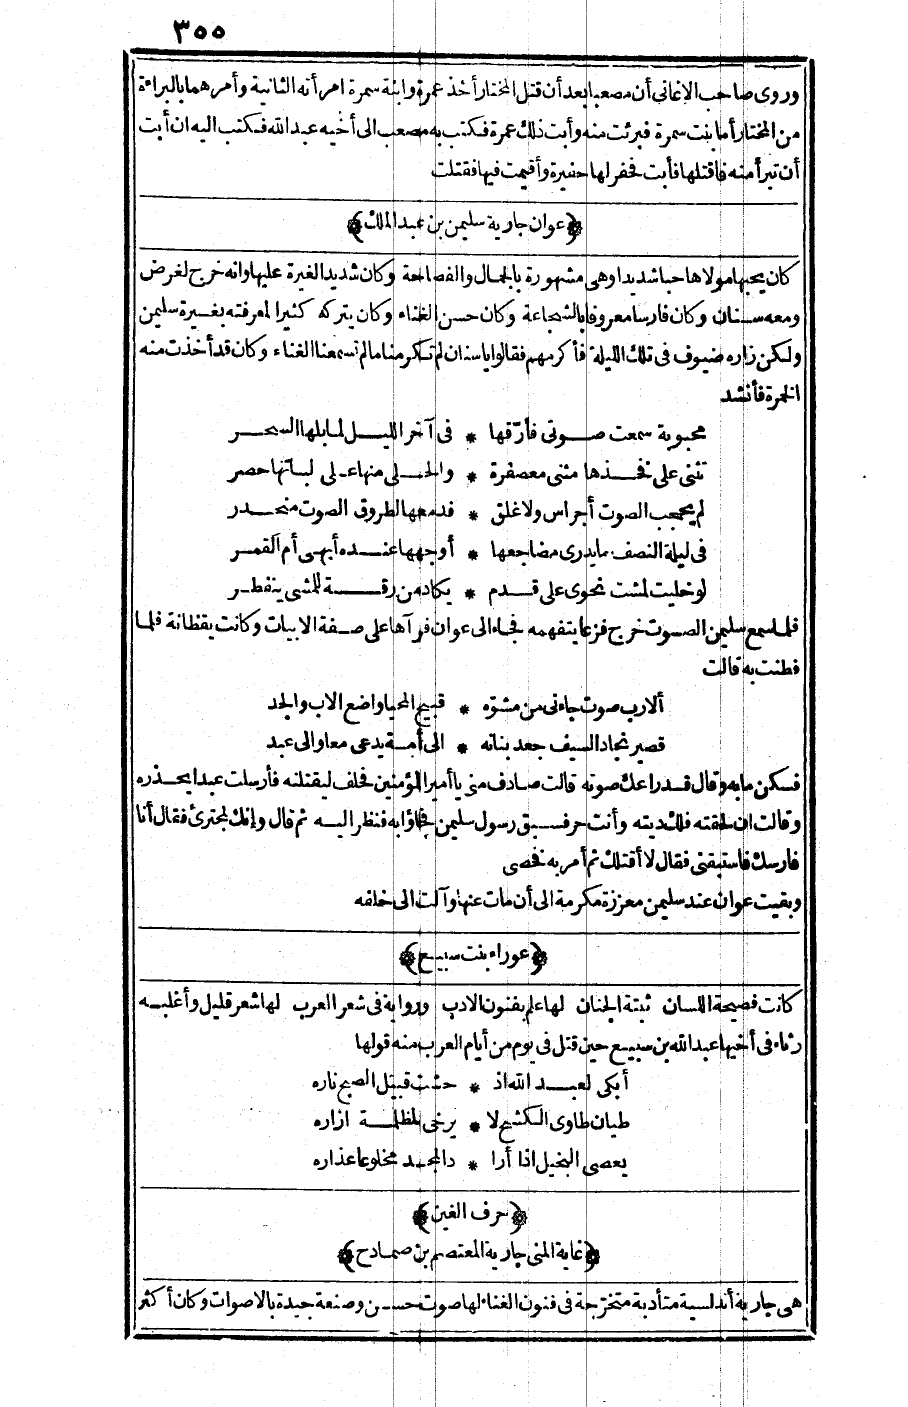 ٣٥٥
وروى صاحب الاغانى أن مصعبا بعد أن قتل المختار أخذ عمرة وابنة سمرة امرأته الثانية وأمرهما بالبراءة
من المختار أما بنت سمرة فبرئت منه وأبت ذلك عمرة فكتب به مصعب الى أخيه عبد الله فكتب اليه ان أبت
أن تبرأ منه فاقتلها فأبت فحفر لها حفيرة وأقيمت فيها فقتلت
﴿عوان جارية سليمن بن عبد الملك﴾
كان يحبها مولاها حبا شديدا وهى مشهورة بالجمال والفصاحة وكان شديد الغيرة عليها وانه خرج لغرض
ومعه سنان وكان فارسا معروفا بالشجاعة وكان حسن الغناء وكان يتركه كثيرا لمعرفته بغيرة سليمن
ولكن زاره ضيوف فى تلك الليلة فأكرمهم فقالوا ياسنان لم تكرمنا مالم تسمعنا الغناء وكان قد أخذت منه
الخمرة فأنشد
محجوبة سمعت صوتى فأرّقها * فى آخر الليل لما بلها السحر
تثنى على فخذها مثنى معصفرة * والحلى منها على لباتها حصر
لم يحجب الصوت أجراس ولا غلق * فدمعها لطروق الصوت منحدر
فى ليلة النصف مايدرى مضاجعها * أوجهها عنده أبهى أم القمر
لو خليت لمشت نحوى على قدم * يكاد من رقة للمشى ينفطر
فلما سمع سليمن الصوت خرج فزعا يتفهمه فجاء الى عوان فرآها على صفة الابيات وكانت يقظانة فلما
فطنت به قالت
ألا رب صوت جاءنى من مشوّه * قبيح المحيا واضع الاب والجد
قصير نجاد السيف جعد بنانه * الى أمة يدعى معا والى عبد
فسكن مابه وقال قد راعك صوته قالت صادف منى يا أمير المؤمنين فحلف ليقتلنه فأرسلت عبدا يحذره
وقالت ان لحقته فلك ديته وأنت حر فسبق رسول سليمن فجاؤا به فنظر اليه ثم قال وانك لمجترئ فقال أنا
فارسك فاستبقنى فقال لا أقتلك ثم أمر به فخصى
وبقيت عوان عند سليمن معززة مكرمة الى أن مات عنها وآلت الى خلفه
﴿عوراء بنت سبيع﴾
كانت فصيحة اللسان ثبتة الجنان لها علم بفنون الادب ورواية فى شعر العرب لها شعر قليل وأغلبه
رثاء فى أخيها عبد الله بن سبيع حين قتل فى يوم من أيام العرب منه قولها
أبكى لعبد الله اذ * حشت قبيل الصبح ناره
طيان طاوى الكشح لا * يرخى لمظلمة ازاره
يعصى البخيل اذا أرا * د المجد مخلوعا عذاره
﴿حرف الغين﴾
﴿غاية المنى جارية المعتصم بن صمادح﴾
هى جارية أندلسية متأدبة متخرّجة فى فنون الغناء لها صوت حسن وصنعة جيدة بالاصوات وكان أكثر